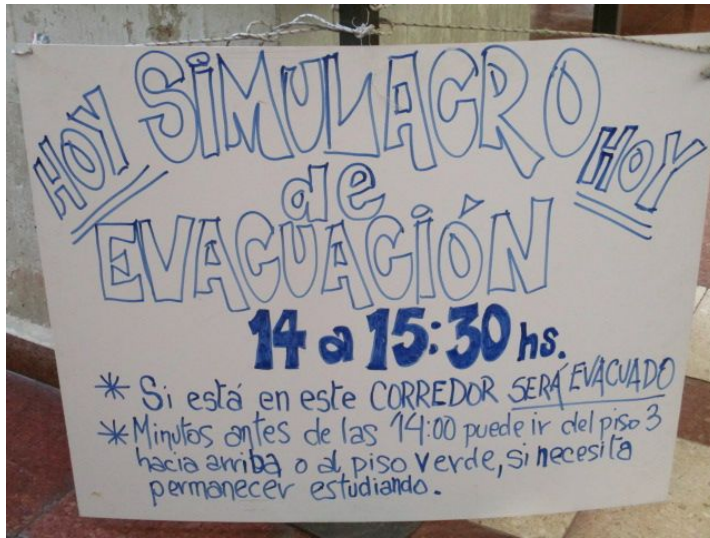 HOY SIMULACRO HOY
de
EVACUACIÓN
14 a 15:30 hs.
* Si está en este CORREDOR SERÁ EVACUADO
* Minutos antes de las 14:00 puede ir del piso 3
hacia arriba o al piso Verde, si necesita
permanecer estudiando.